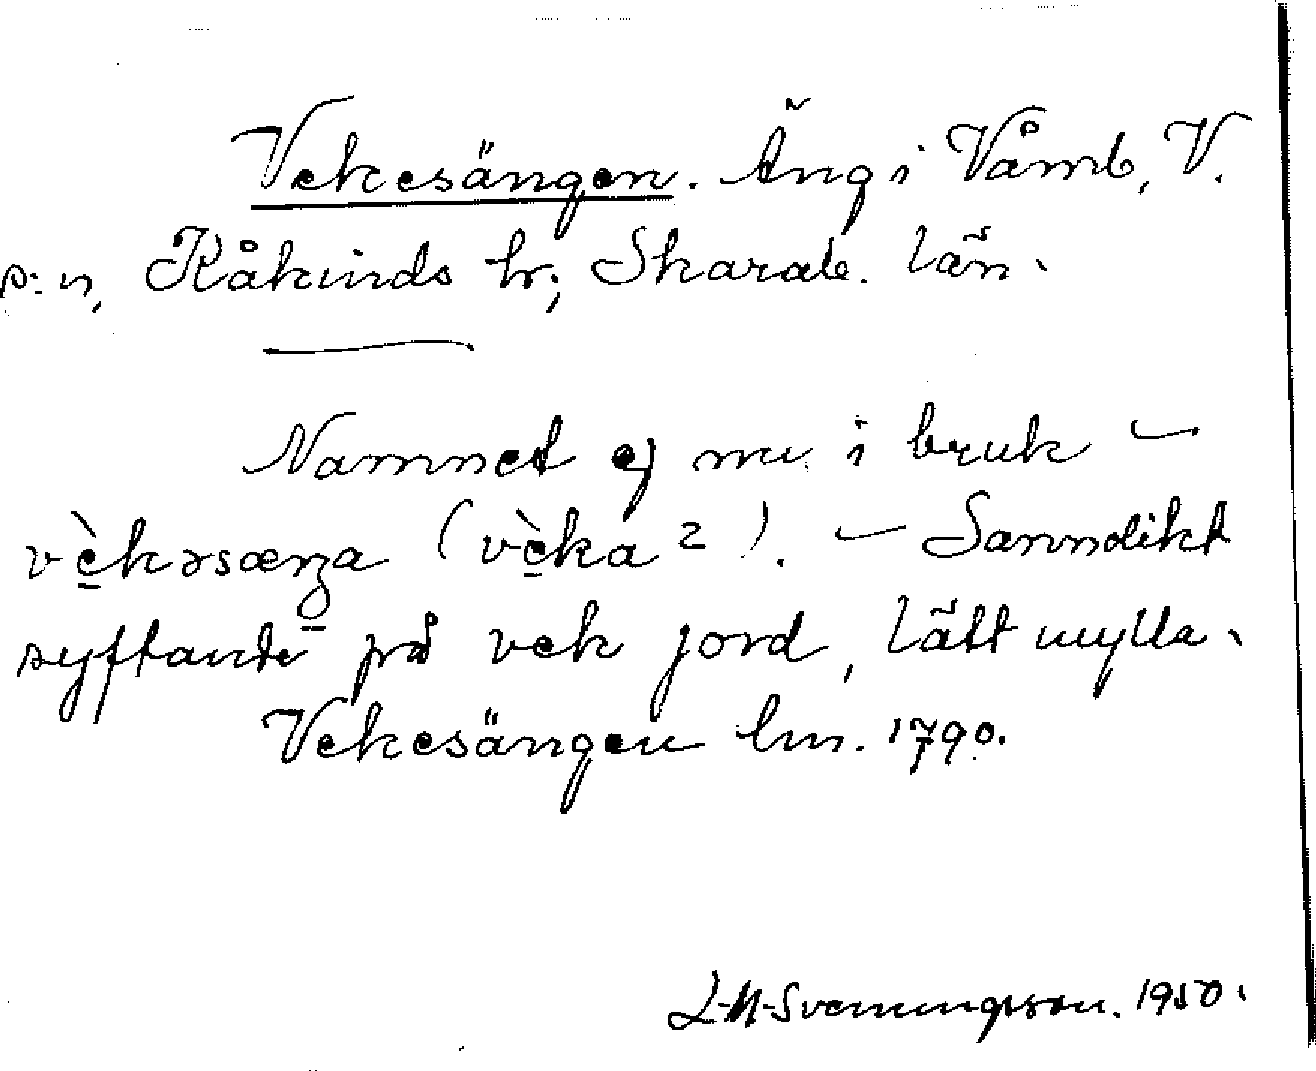 Vekesängen. Äng i Våmb, V.
s:n, Kåkinds hr; Skarab. län.
Namnet ej nu i bruk –
vèkəsæŋa (vèka 2). – Sannolikt
syftande på vek jord, lätt mylla.
Vekesängen lm. 1790.
Svenungsson. 1950.